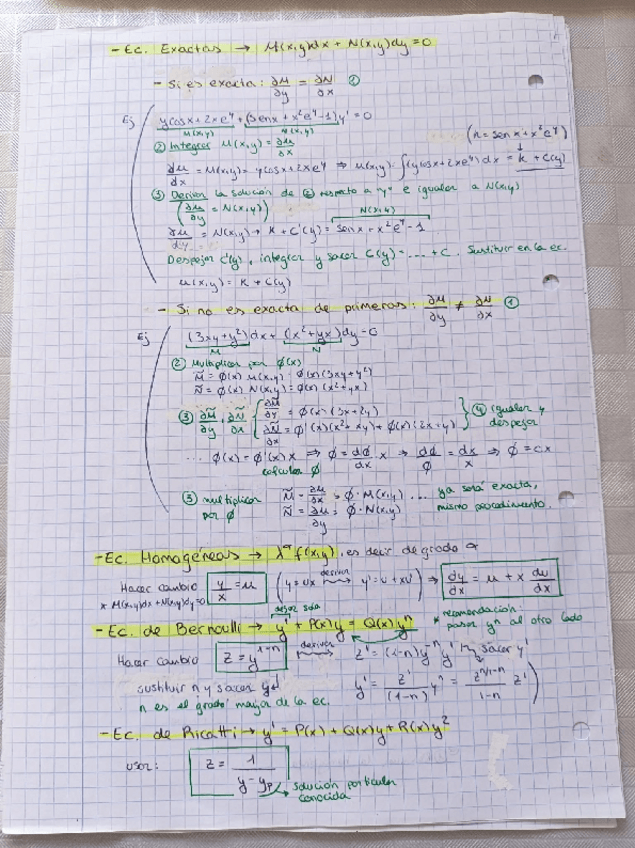 - Ec. Exactas → M(x,y)dx + N(x,y)dy = 0
- Si es exacta: ∂M/∂y = ∂N/∂x ①
Ej ycosx + 2xe^y + (senx + x²e^y - 1)y' = 0
M(x,y) N(x,y)
② Integrar M(x,y) = ∂u/∂x (k = senx + x²e^y)
∂u/dx = M(x,y) = ycosx + 2xe^y ⇒ u(x,y) = ∫(ycosx + 2xe^y)dx = k + C(y)
③ Derivar la solución de ② respecto a "y" e igualar a N(x,y)
(∂u/∂y = N(x,y)) N(x,y)
∂u/dy = N(x,y) → k + C'(y) = senx + x²e^y - 1
Despejar C'(y), integrar y sacar C(y) = ... + C. Sustituir en la ec.
u(x,y) = k + C(y)
- Si no es exacta de primeras: ∂M/∂y ≠ ∂N/∂x ①
Ej (3xy + y²)dx + (x² + yx)dy = 0
M N
② Multiplicar por ϕ(x)
M̃ = ϕ(x) M(x,y) = ϕ(x)(3xy + y²)
Ñ = ϕ(x) N(x,y) = ϕ(x)(x² + yx)
③ ∂M̃/∂y, ∂Ñ/∂x { ∂M̃/∂y = ϕ(x)(3x + 2y)
∂Ñ/∂x = ϕ'(x)(x² + xy) + ϕ(x)(2x + y) } ④ igualar y despejar
... ϕ(x) = ϕ'(x)x ⇒ ϕ = dϕ/dx x ⇒ dϕ/ϕ = dx/x ⇒ ϕ = cx
calcular ϕ
⑤ multiplicar por ϕ M̃ = ∂u/∂x = ϕ·M(x,y) ... ya será exacta,
Ñ = ∂u/∂y = ϕ·N(x,y) mismo procedimiento.
- Ec. Homogéneas → λ^α f(x,y), es decir de grado α
Hacer cambio y/x = u (y = ux derivar y' = u + xu') ⇒ dy/dx = u + x du/dx
* M(x,y)dx + N(x,y)dy = 0
dejar sola
- Ec. de Bernoulli → y' + P(x)y = Q(x)y^n
* recomendación: pasar y^n al otro lado
Hacer cambio z = y^(1-n) derivar z' = (1-n)y^-n y' sacar y'
sustituir n y sacar y' y' = z'/(1-n) y^n = z^(n/1-n)/(1-n) z'
n es el grado mayor de la ec.
- Ec. de Ricatti → y' = P(x) + Q(x)y + R(x)y²
usar: z = 1/(y - yp) → solución particular conocida